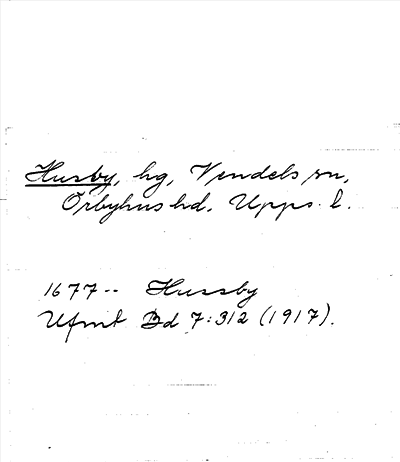 Husby, hg, Vendels sn,
Örbyhus hd. Upps. l.
1677-- Hussby
Ufmt Bd 7:312 (1917).